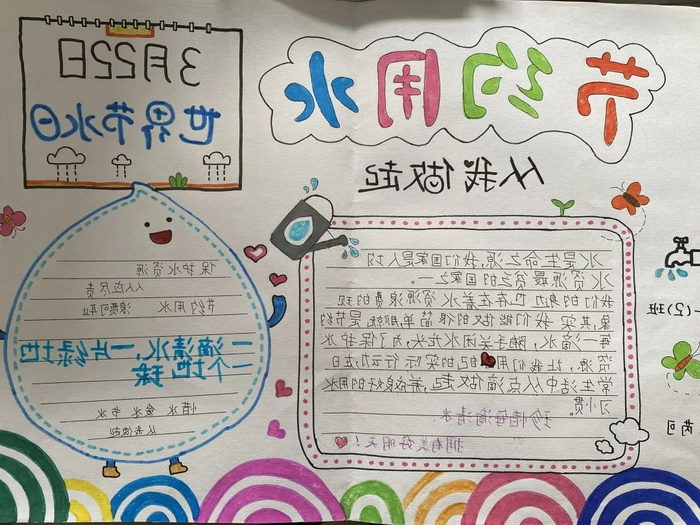 节约用水
从我做起
3月22日
世界节水日
水是生命之源,我们国家是人均
水资源最贫乏的国家之一。
我们的身边也存在着水资源浪费的现
象,其实我们能做的很简单,那就是节约
每一滴水,随手关闭水龙头,为了保护水
资源,让我们用自己的实际行动,在日
常生活中从点滴做起,养成良好的用水
习惯。
珍惜每滴清水
拥有美好明天!
保护水资源
人人应尽责
节约用水 浪费可耻
一滴清水,一片绿地
一个地球
惜水 爱水 节水
从我做起
一(2)班